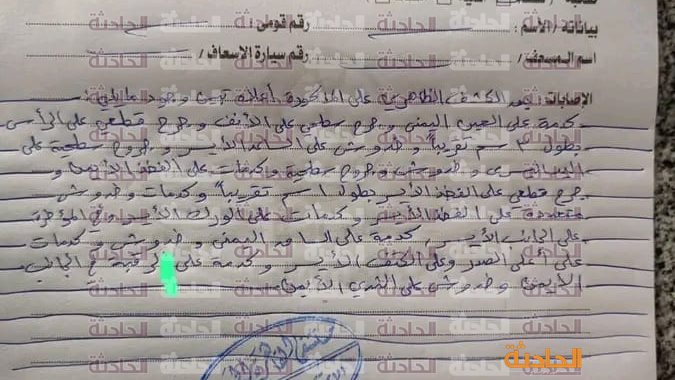 بياناته / الاسم: رقم قومى /
اسم المسعف / رقم سيارة الإسعاف /
الإصابات: بعد الكشف الظاهري على المذكورة أعلاه تبين وجود ما يلي:
كدمة على العين اليمنى وجرح سطحي على الأنف وجرح قطعي على الرأس
بطول ٣ سم تقريباً وخدوش على الساعد الأيسر وجروح سطحية على
وخدوش وجروح سطحية وكدمات على الفخذ الأيمن و
جرح قطعي على الفخذ الأيسر بطول ١ سم تقريباً وكدمات وخدوش
متعددة على الفخذ الأيسر وكدمات على الورك الأيسر وفي المؤخرة
على الجانب الأيسر، كدمة على اليمنى وخدوش وكدمات
على أعلى الصدر وعلى الكتف الأيسر وكدمة على الرقبة في الجانب
الأيمن وخدوش على الثدي الأيمن.
الحادثة